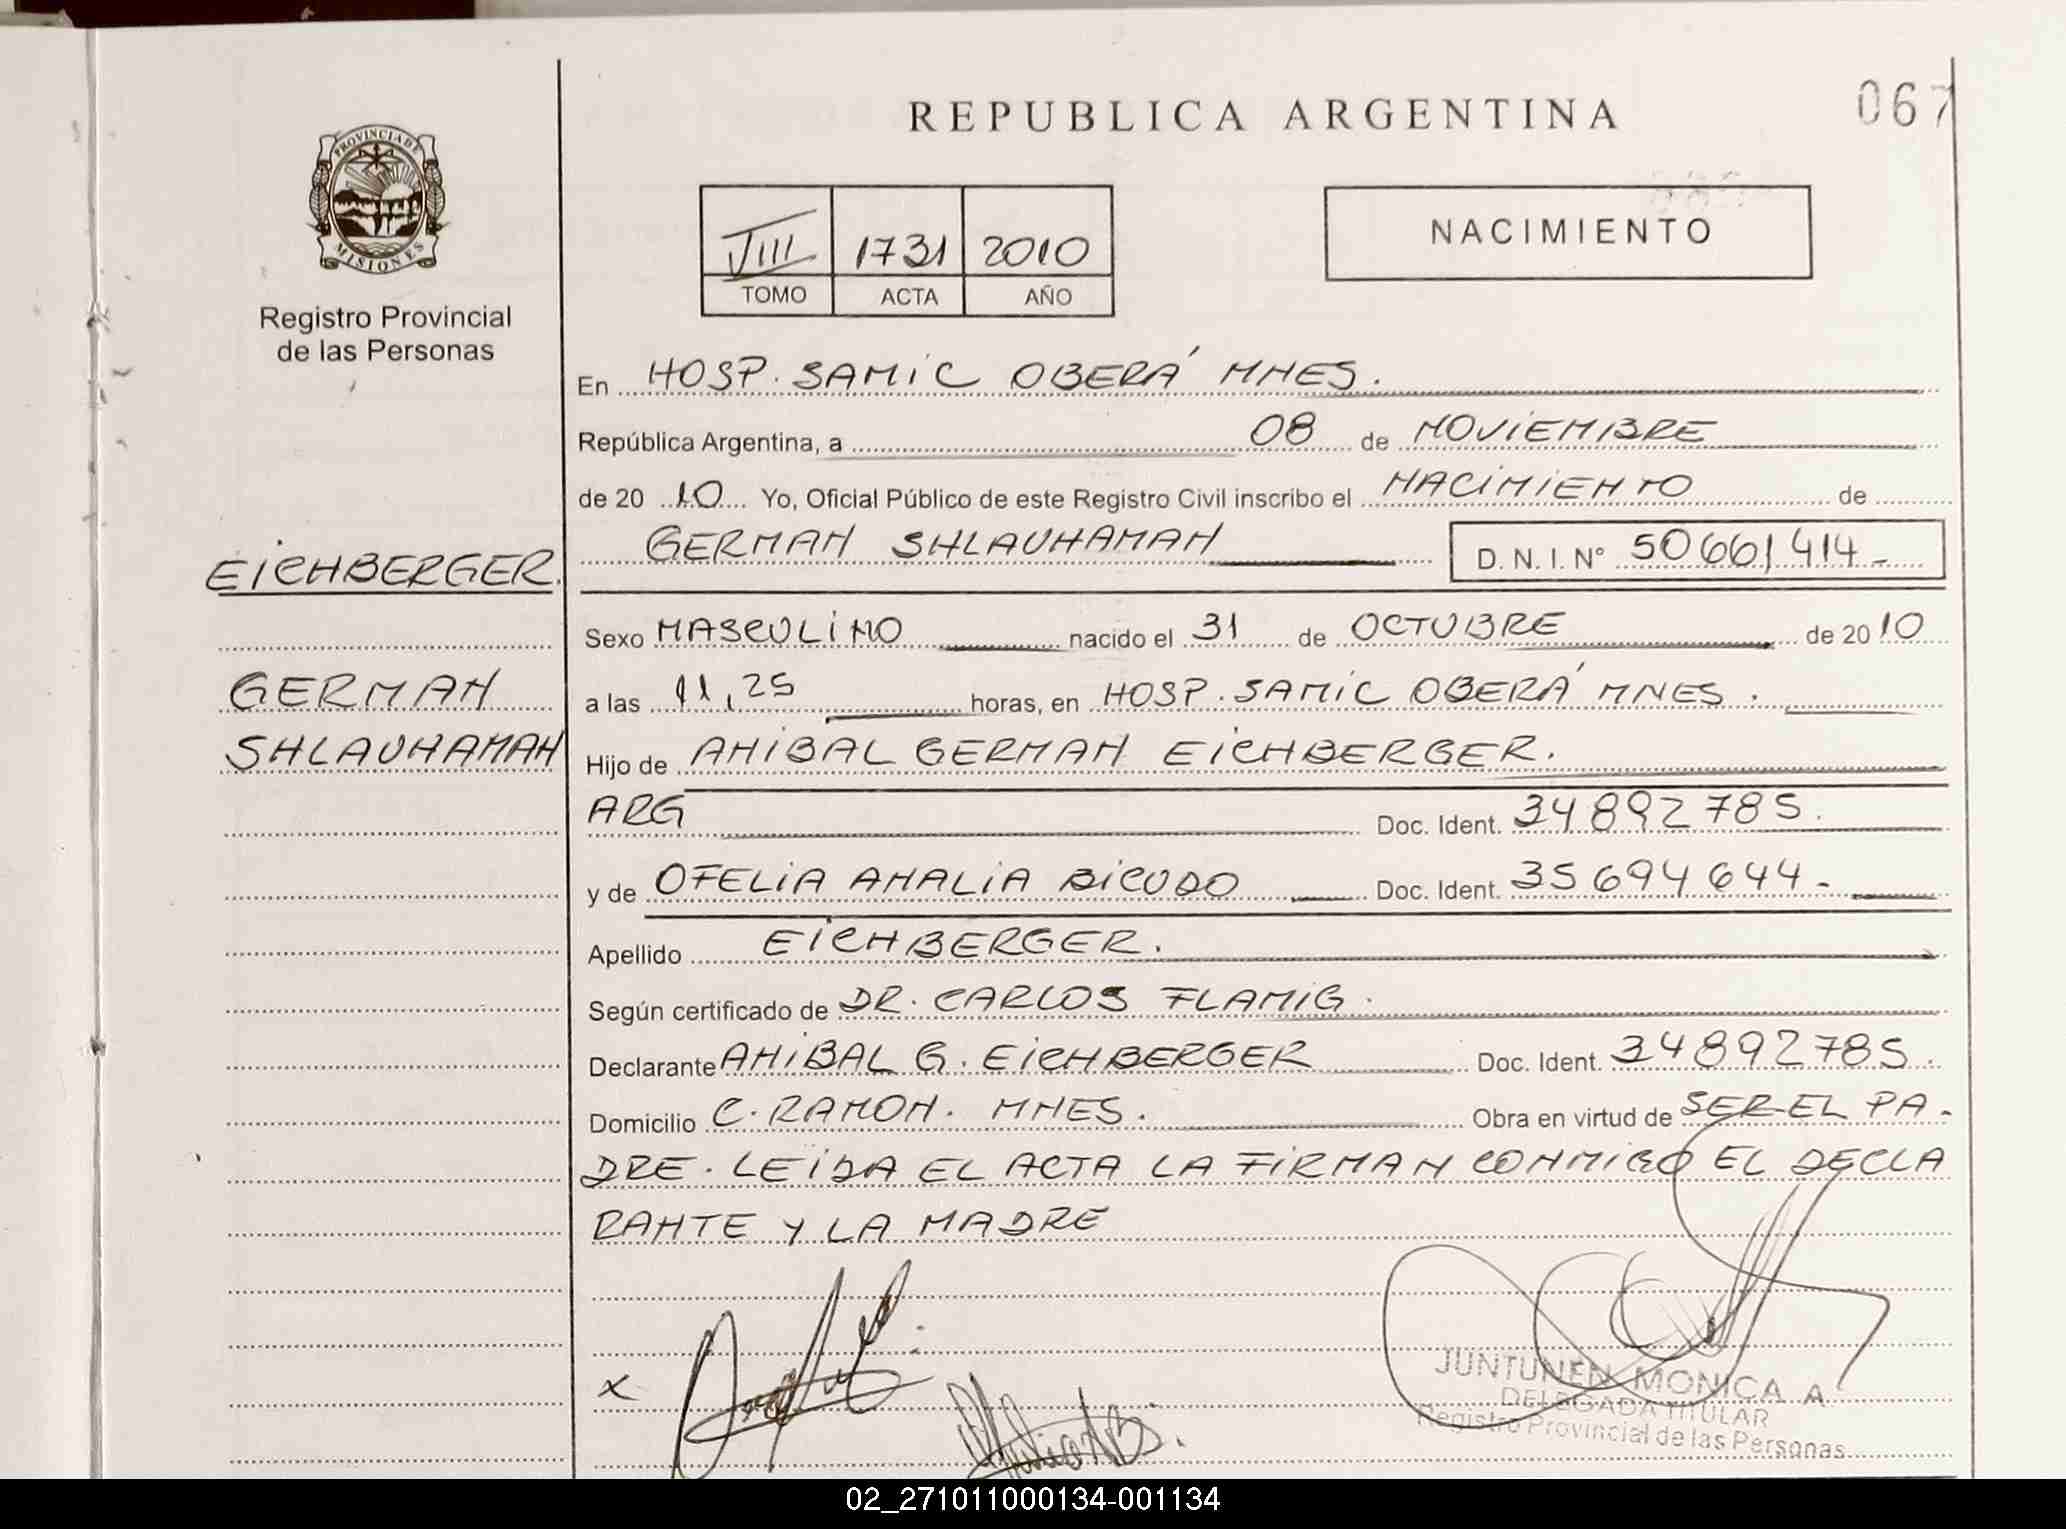 REPUBLICA ARGENTINA
067
PROVINCIA DE
MISIONES
Registro Provincial
de las Personas
VIII 1731 2010
TOMO ACTA AÑO
NACIMIENTO
En HOSP. SAMIC OBERÁ MNES.
República Argentina, a 08 de NOVIEMBRE
de 20 10 Yo, Oficial Público de este Registro Civil inscribo el NACIMIENTO de
GERMAN SHLAUHAMAN D. N. I. N° 50661414-
EICHBERGER.
GERMAN
SHLAUHAMAN
Sexo MASCULINO nacido el 31 de OCTUBRE de 20 10
a las 11,25 horas, en HOSP. SAMIC OBERÁ MNES.
Hijo de ANIBAL GERMAN EICHBERGER.
ARG Doc. Ident. 34892785.
y de OFELIA AMALIA BICUDO Doc. Ident. 35694644-
Apellido EICHBERGER.
Según certificado de DR. CARLOS FLAMIG.
Declarante ANIBAL G. EICHBERGER Doc. Ident. 34892785.
Domicilio C. RAMON. MNES. Obra en virtud de SER EL PA-
DRE. LEIDA EL ACTA LA FIRMAN CONMIGO EL DECLA
RANTE Y LA MADRE
X
JUNTUNEN MONICA A
DELEGADA TITULAR
Registro Provincial de las Personas
02_271011000134-001134